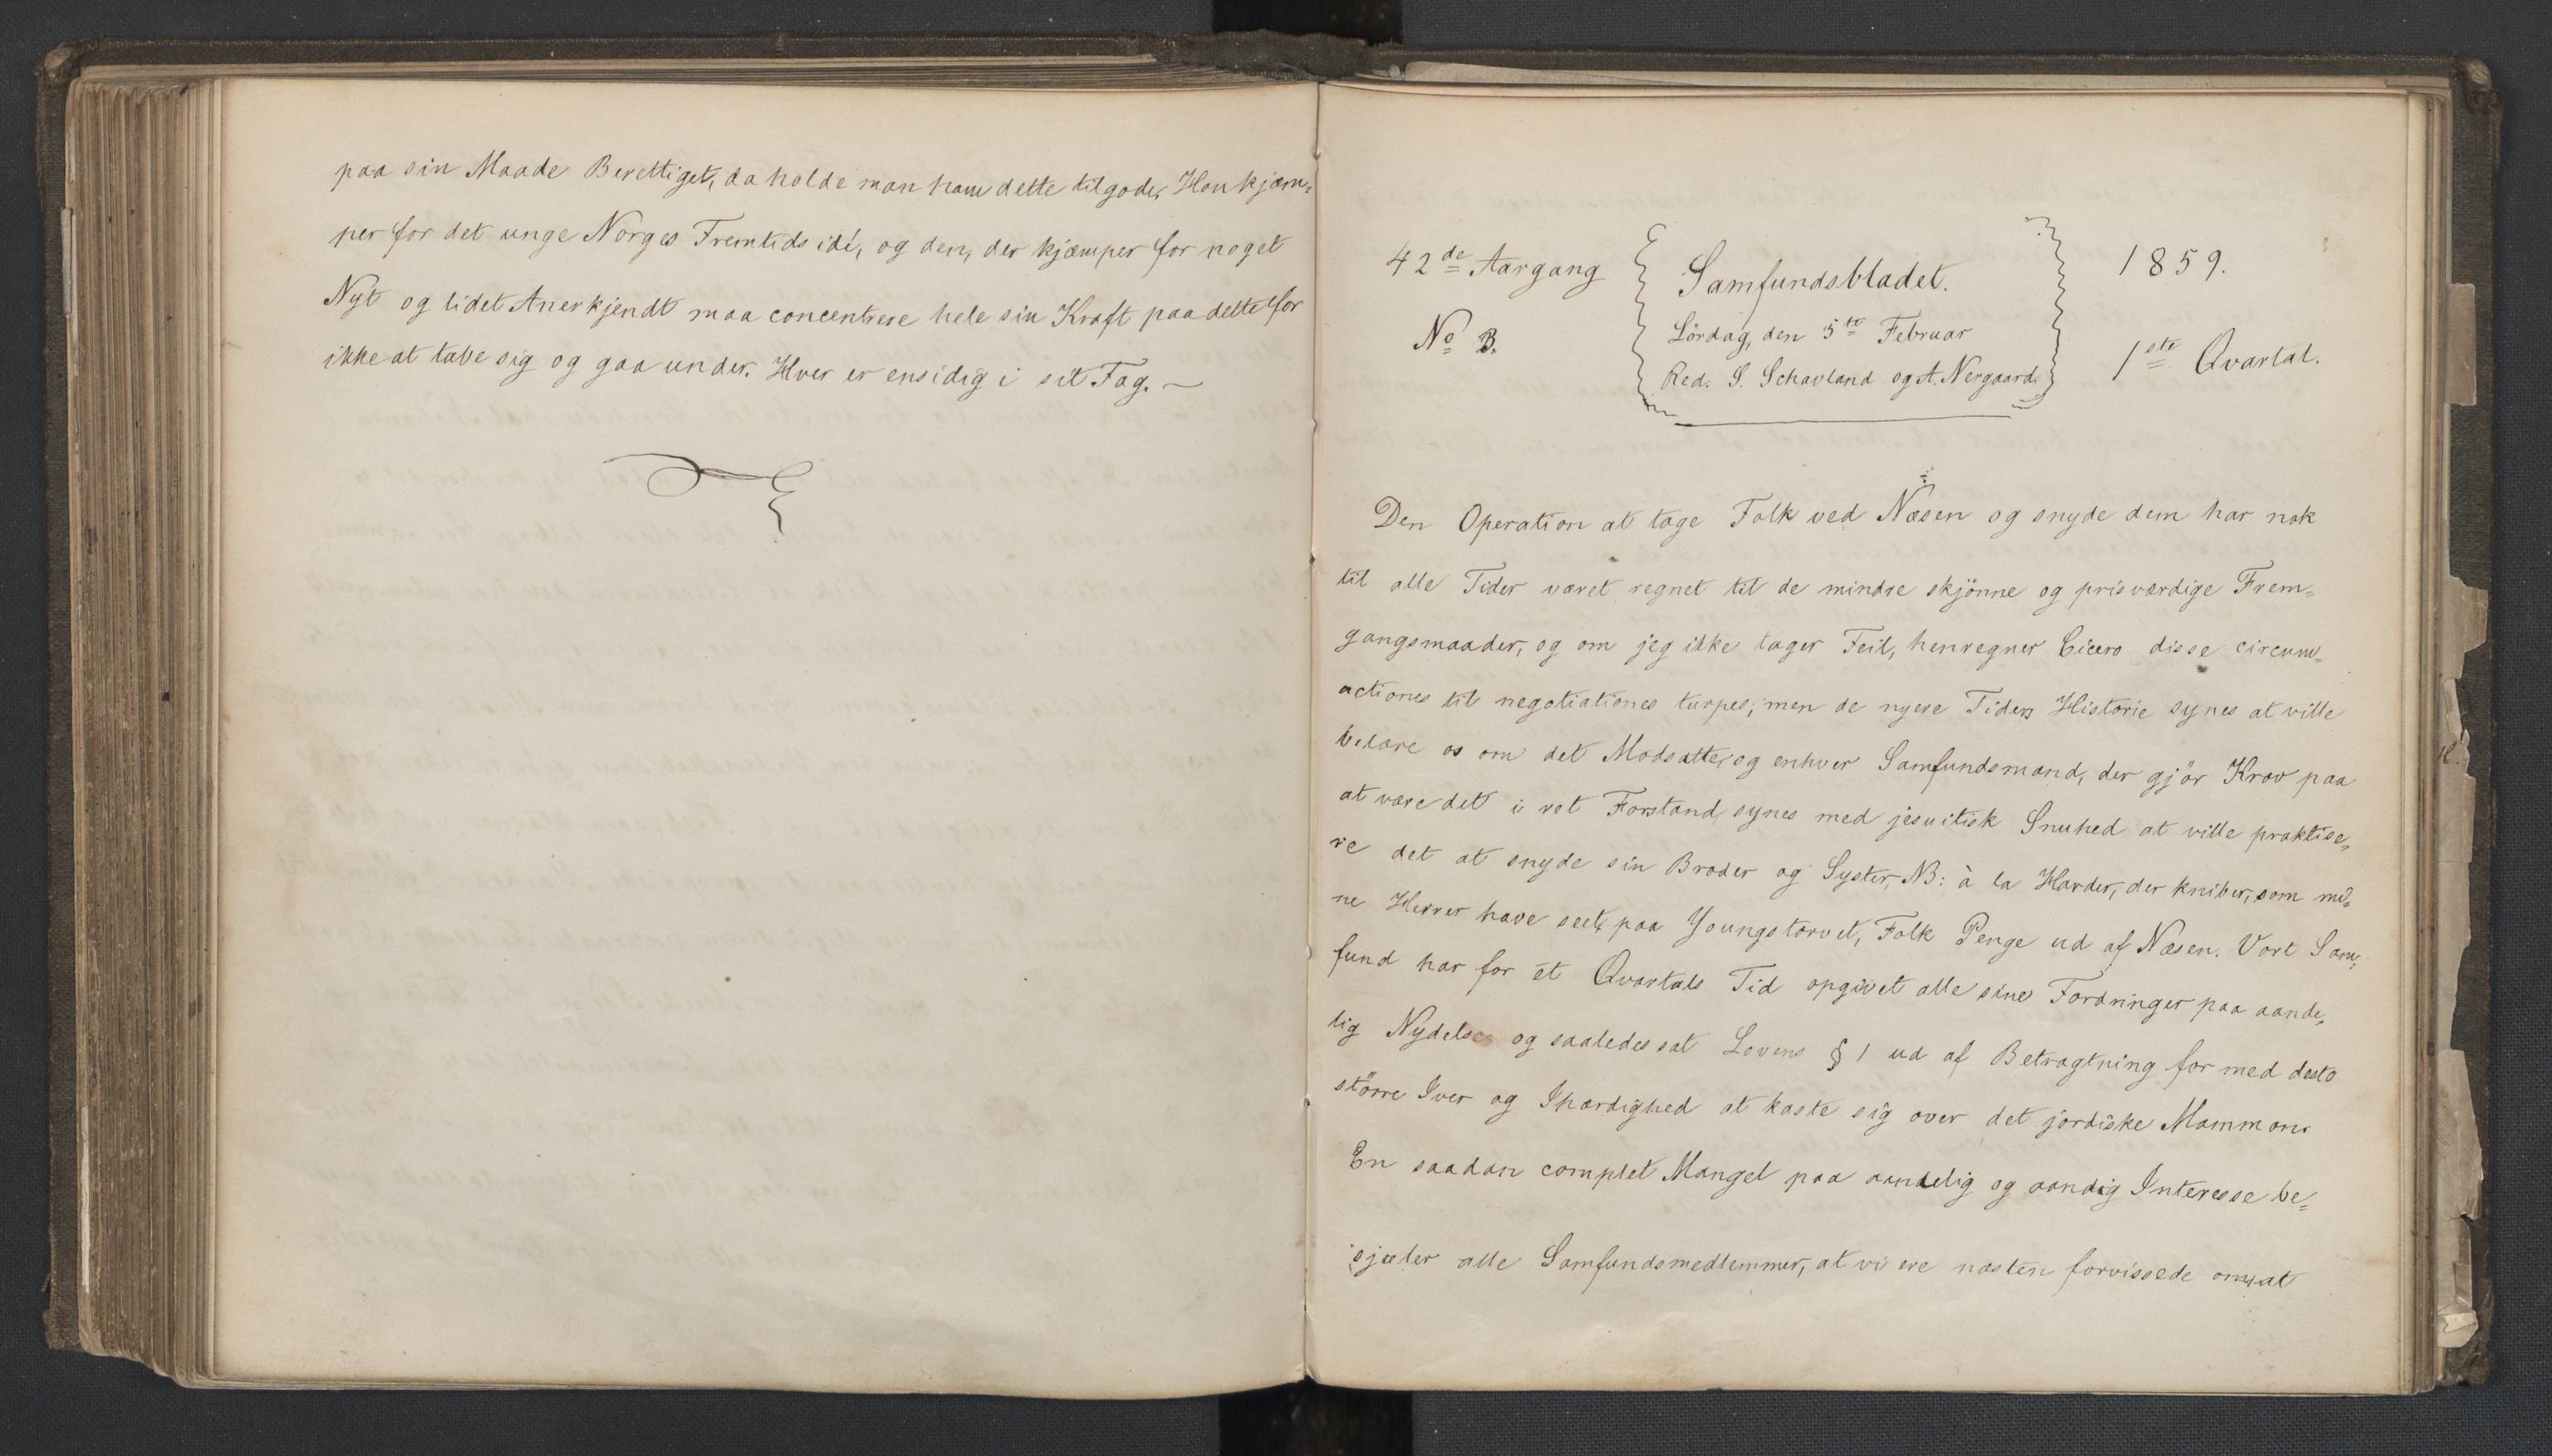 paa sin Maade Berettiget, da holde man ham dette tilgode, Han kjæm=
per for det unge Norges Fremtidsidé, og den, der kjæmper for noget
Nyt og lidet Anerkjendt maa concentrere hele sin Kraft paa dette for
ikke at tabe sig og gaa under. Hver er ensidig i sit Fag. —
42de Aargang
No 3.
Samfundsbladet.
Lördag, den 5te Februar
Red. S. Schavland og A. Nergaard.
1859.
1ste Qvartal.
Den Operation at tage Folk ved Næsen og snyde dem har nok
til alle Tider været regnet til de mindre skjönne og prisværdige Frem=
gangsmaader, og om jeg ikke tager Feil, henregner Cicero disse circum=
actiones til negotiationes turpes; men de nyere Tiders Historie synes at ville
belære os om det Modsatte, og enhver Samfundsmand, der gjör Krav paa
at være det i ret Forstand synes med jesuitisk Snuhed at ville praktise=
re det at snyde sin Broder og Syster, NB: à la Harder, der kniber, som mi=
ne Herrer have seet, paa Youngstorvet, Folk Penge ud af Næsen. Vort Sam=
fund har for ét Qvartals Tid opgivet alle sine Fordringer paa aande=
lig Nydelse og saaledes sat Lovens § 1 ud af Betragtning for med desto
större Iver og Ihærdighed at kaste sig over det jordiske Mammon.
En saadan complet Mangel paa aandelig og aandig Interesse be=
sjæler alle Samfundsmedlemmer, at vi ere næsten forvissede om, at